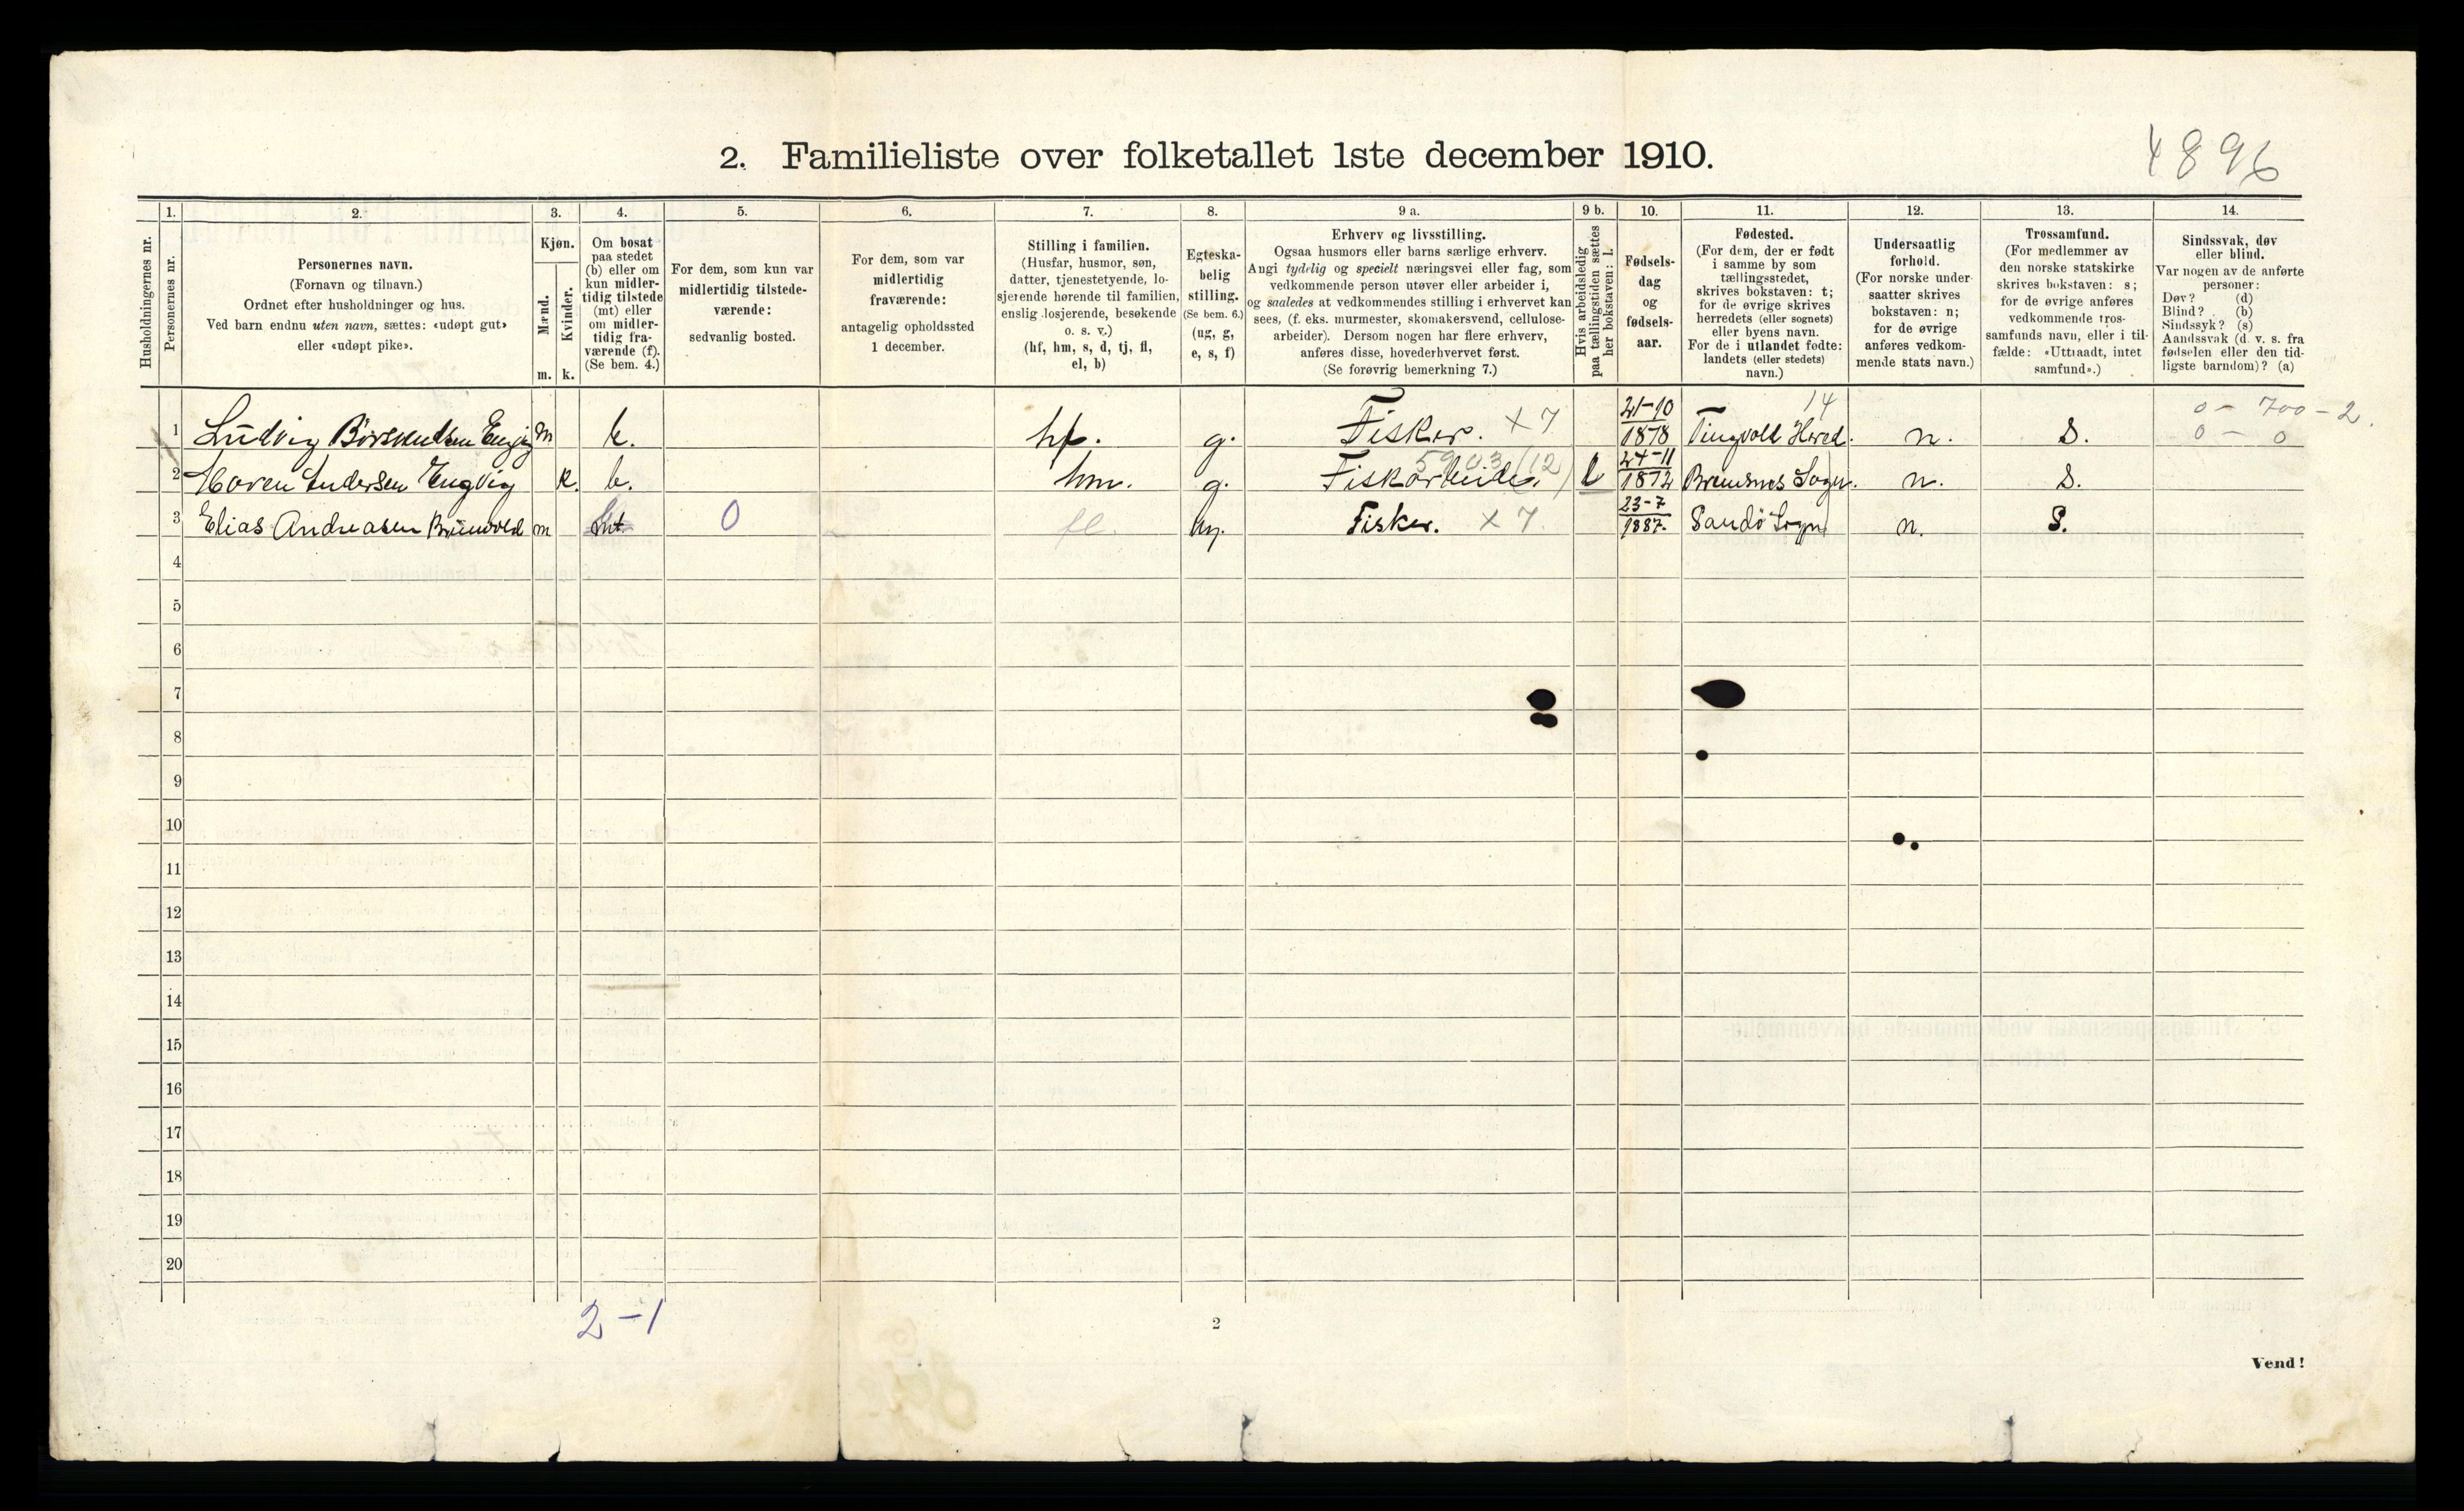 4896
2. Familieliste over folketallet 1ste december 1910.
Husholdningernes nr.
1.
Personernes nr.
2.
Personernes navn.
(Fornavn og tilnavn.)
Ordnet efter husholdninger og hus.
Ved barn endnu uten navn, sættes: «udøpt gut»
eller «udøpt pike».
3.
Kjøn.
Mænd.
Kvinder.
m. k.
4.
Om bosat
paa stedet
(b) eller om
kun midler-
tidig tilstede
(mt) eller
om midler-
tidig fra-
værende (f).
(Se bem. 4.)
5.
For dem, som kun var
midlertidig tilstede-
værende:
sedvanlig bosted.
6.
For dem, som var
midlertidig
fraværende:
antagelig opholdssted
1 december.
7.
Stilling i familien.
(Husfar, husmor, søn,
datter, tjenestetyende, lo-
sjerende hørende til familien,
enslig losjerende, besøkende
o. s. v.)
(hf, hm, s, d, tj, fl,
el, b)
8.
Egteska-
belig
stilling.
(Se bem. 6.)
(ug, g,
e, s, f)
9 a.
Erhverv og livsstilling.
Ogsaa husmors eller barns særlige erhverv.
Angi tydelig og specielt næringsvei eller fag, som
vedkommende person utøver eller arbeider i,
og saaledes at vedkommendes stilling i erhvervet kan
sees, (f. eks. murmester, skomakersvend, cellulose-
arbeider). Dersom nogen har flere erhverv,
anføres disse, hovederhvervet først.
(Se forøvrig bemerkning 7.)
9 b.
Hvis arbeidsledig
paa tællingstiden sættes
her bokstaven: l.
10.
Fødsels-
dag
og
fødsels-
aar.
11.
Fødested.
(For dem, der er født
i samme by som
tællingsstedet,
skrives bokstaven: t;
for de øvrige skrives
herredets (eller sognets)
eller byens navn.
For de i utlandet fødte:
landets (eller stedets)
navn.)
12.
Undersaatlig
forhold.
(For norske under-
saatter skrives
bokstaven: n;
for de øvrige
anføres vedkom-
mende stats navn.)
13.
Trossamfund.
(For medlemmer av
den norske statskirke
skrives bokstaven: s;
for de øvrige anføres
vedkommende tros-
samfunds navn, eller i til-
fælde: «Uttraadt, intet
samfund».)
14.
Sindssvak, døv
eller blind.
Var nogen av de anførte
personer:
Døv? (d)
Blind? (b)
Sindssyk? (s)
Aandssvak (d. v. s. fra
fødselen eller den tid-
ligste barndom)? (a)
1 Ludvig m b. hf. g. Fisker. x 7 21-10 1878 Tingvold Hered. 14 n. S. 0 - 700 - 2. 0 - 0
2 Andersen Engvig k. b. hm. g. 5903 (12) l 24-11 1872 Bremsnes Sogn. n. S.
3 Elias Andreasen m mt 0 fl. ug. Fisker. x 7. 23-7 1887. Sandö Sogn n. S.
4
5
6
7
8
9
10
11
12
13
14
15
16
17
18
19
20
2-1
2
Vend!